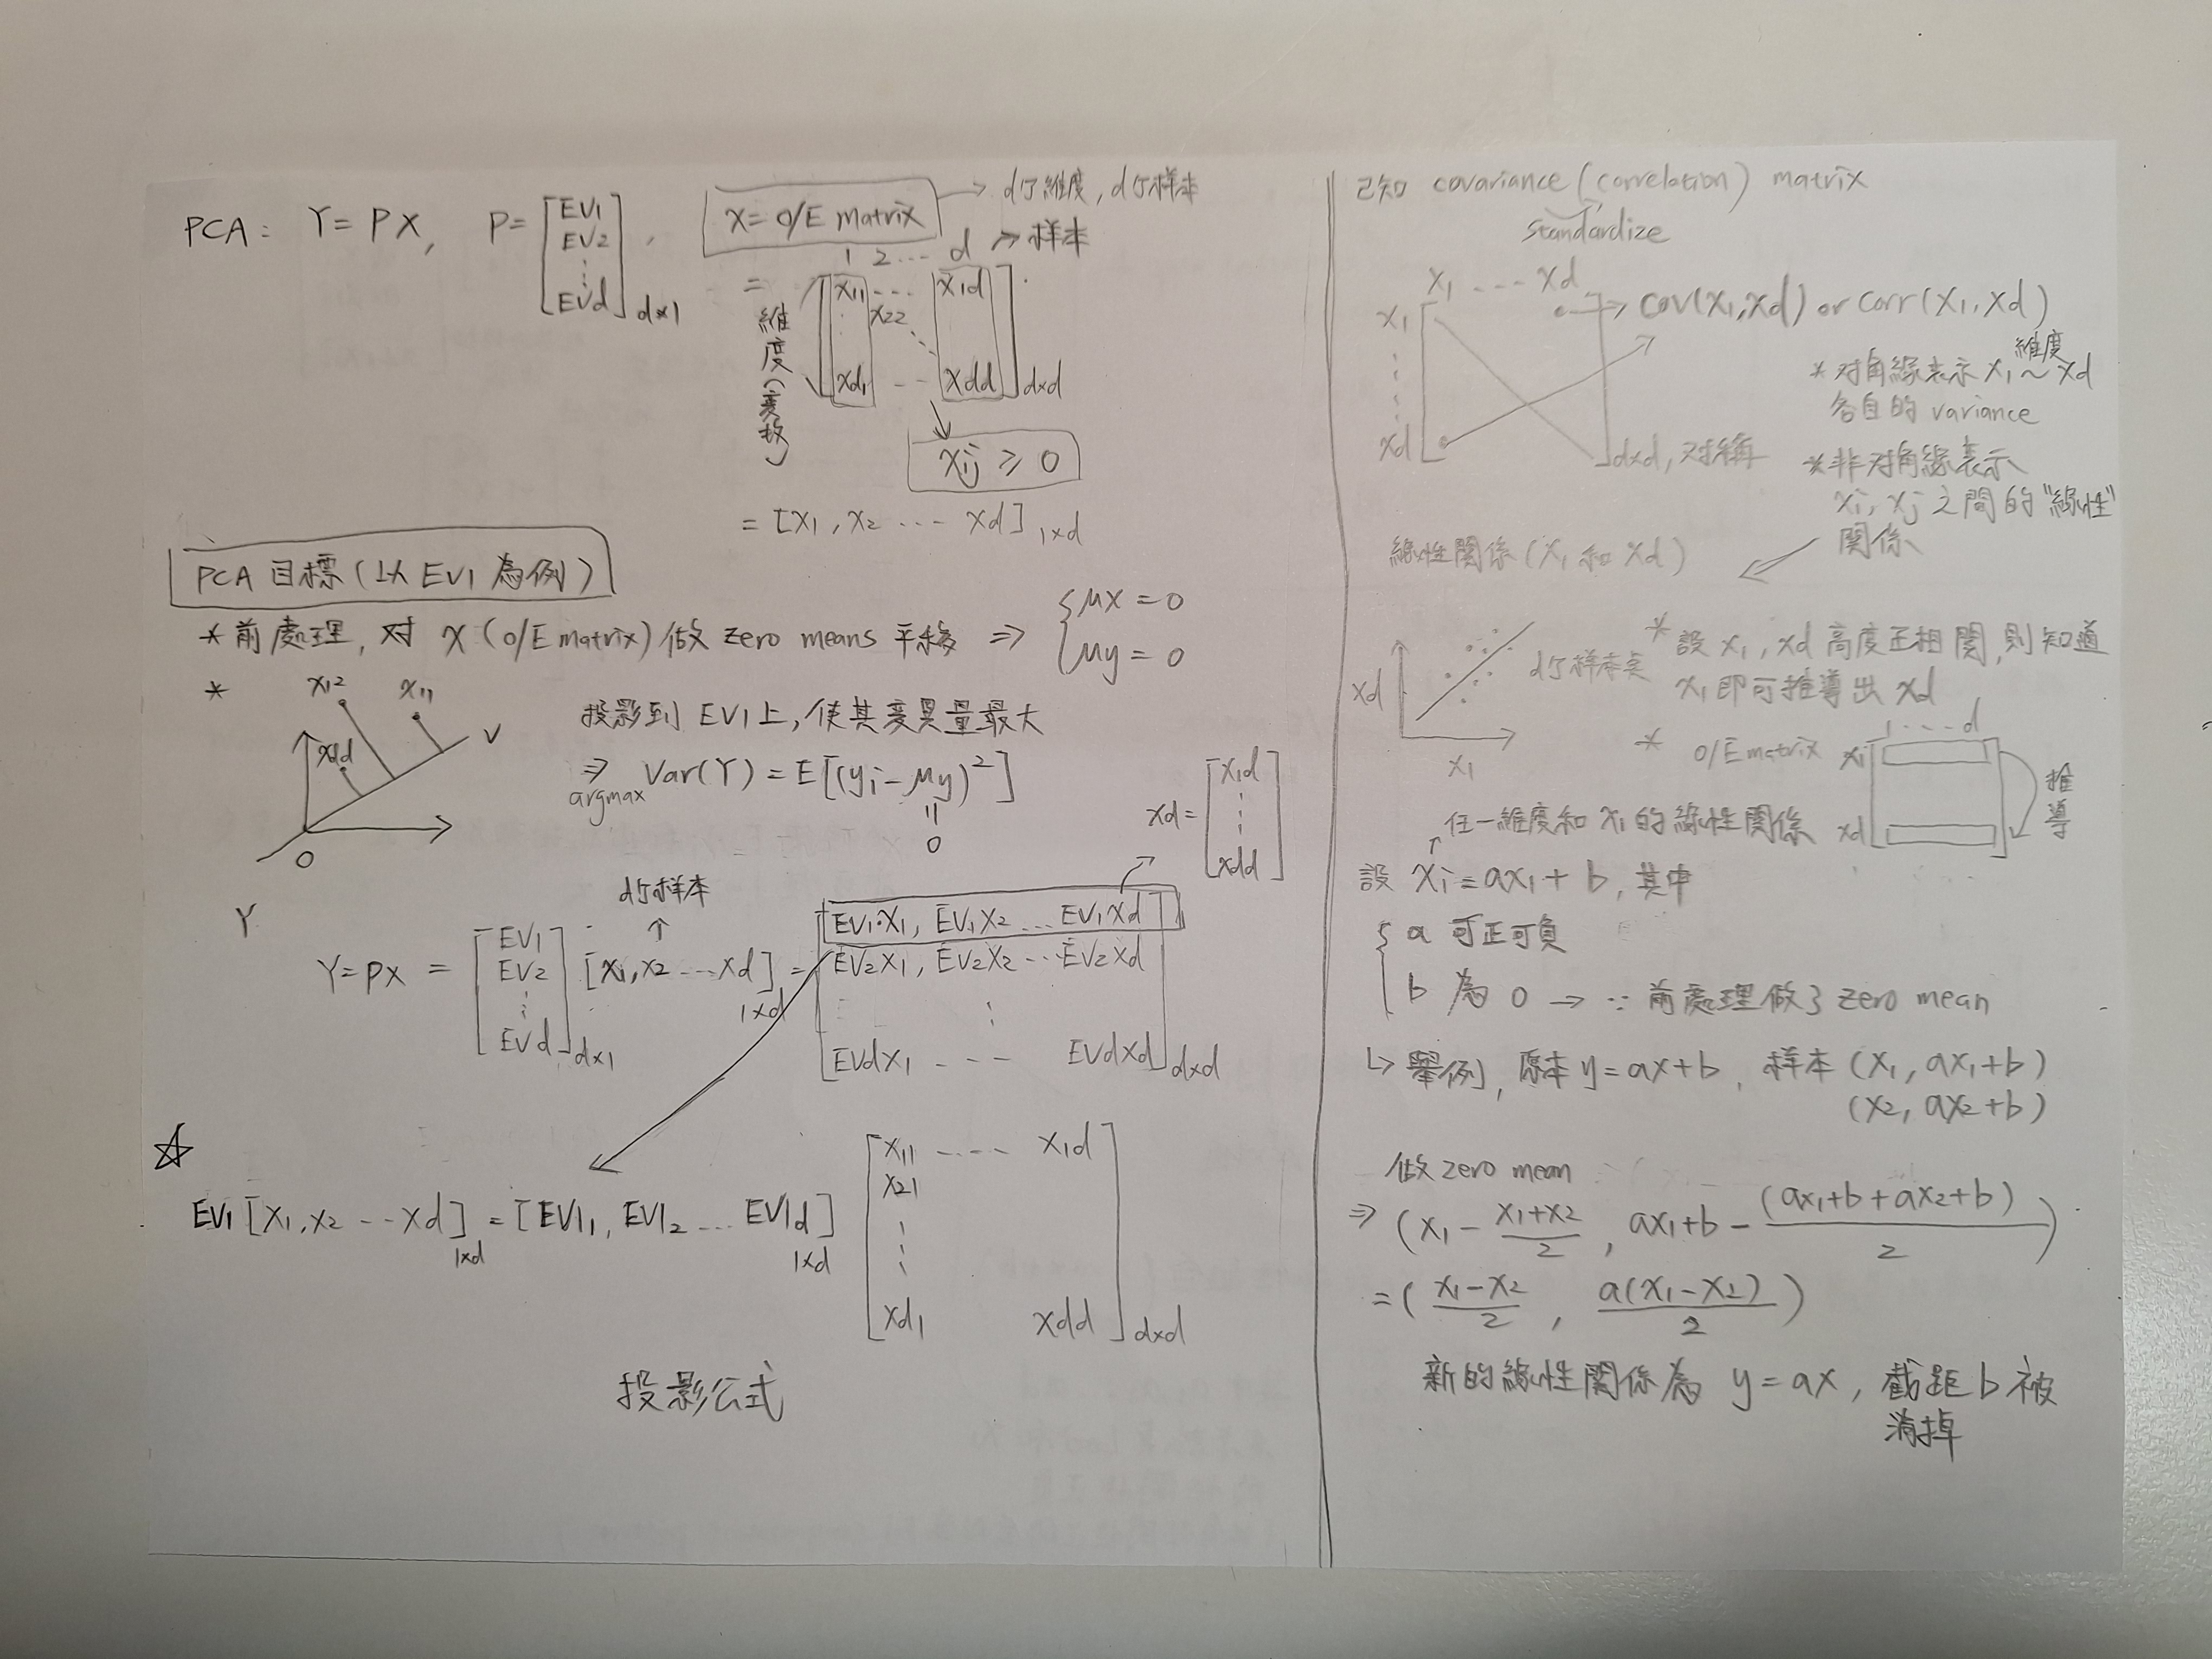 PCA: Y=PX, P=[EV1 EV2 ⋮ EVd]d×1,
X=O/E matrix → d个維度, d个樣本
1 2 ... d → 樣本
= 維度(變数) [x11 ... x1d
x22
xd1 ... xdd]d×d
xij ≥ 0
= [x1, x2 ... xd]1×d
PCA 目標(以 EV1 為例)
* 前處理, 対 X (O/E matrix) 做 zero means 平移 ⇒ {μx = 0
μy = 0
*
x12 x11 x1d V
O
投影到 EV1 上, 使其變異量最大
⇒ argmax Var(Y) = E[(yi-μy)²]
=
0
xd = [x1d ⋮ xdd]
d个樣本
Y
Y=PX = [EV1 EV2 ⋮ EVd]d×1 [x1, x2 ... xd]1×d = [EV1·x1, EV1x2 ... EV1xd
EV2x1, EV2x2 ... EV2xd
⋮ ⋮
EVdx1 --- EVdxd]d×d
☆
EV1[x1, x2 ... xd]1×d = [EV11, EV12 ... EV1d]1×d [x11 .... x1d
x21
⋮
xd1 xdd]d×d
投影公式
已知 covariance (correlation) matrix
standardize
x1 ... xd
x1 → cov(x1, xd) or corr(x1, xd)
xd d×d, 対稱
維度
* 対角線表示 x1~xd
各自的 variance
* 非対角線表示
xi, xj 之間的"線性"
関係
線性関係(x1 和 xd)
xd
x1
d个樣本点
* 設 x1, xd 高度正相関, 則知道
x1 即可推導出 xd
1 ... d
* O/E matrix x1
xd
推導
任一維度和 x1 的線性関係
設 xi = ax1 + b, 其中
{a 可正可負
b 為 0 → ∵ 前處理做了 zero mean
↳ 舉例, 原本 y=ax+b, 樣本 (x1, ax1+b)
(x2, ax2+b)
做 zero mean
⇒ (x1 - (x1+x2)/2, ax1+b - (ax1+b+ax2+b)/2)
= ((x1-x2)/2, a(x1-x2)/2)
新的線性関係為 y=ax, 截距 b 被
消掉